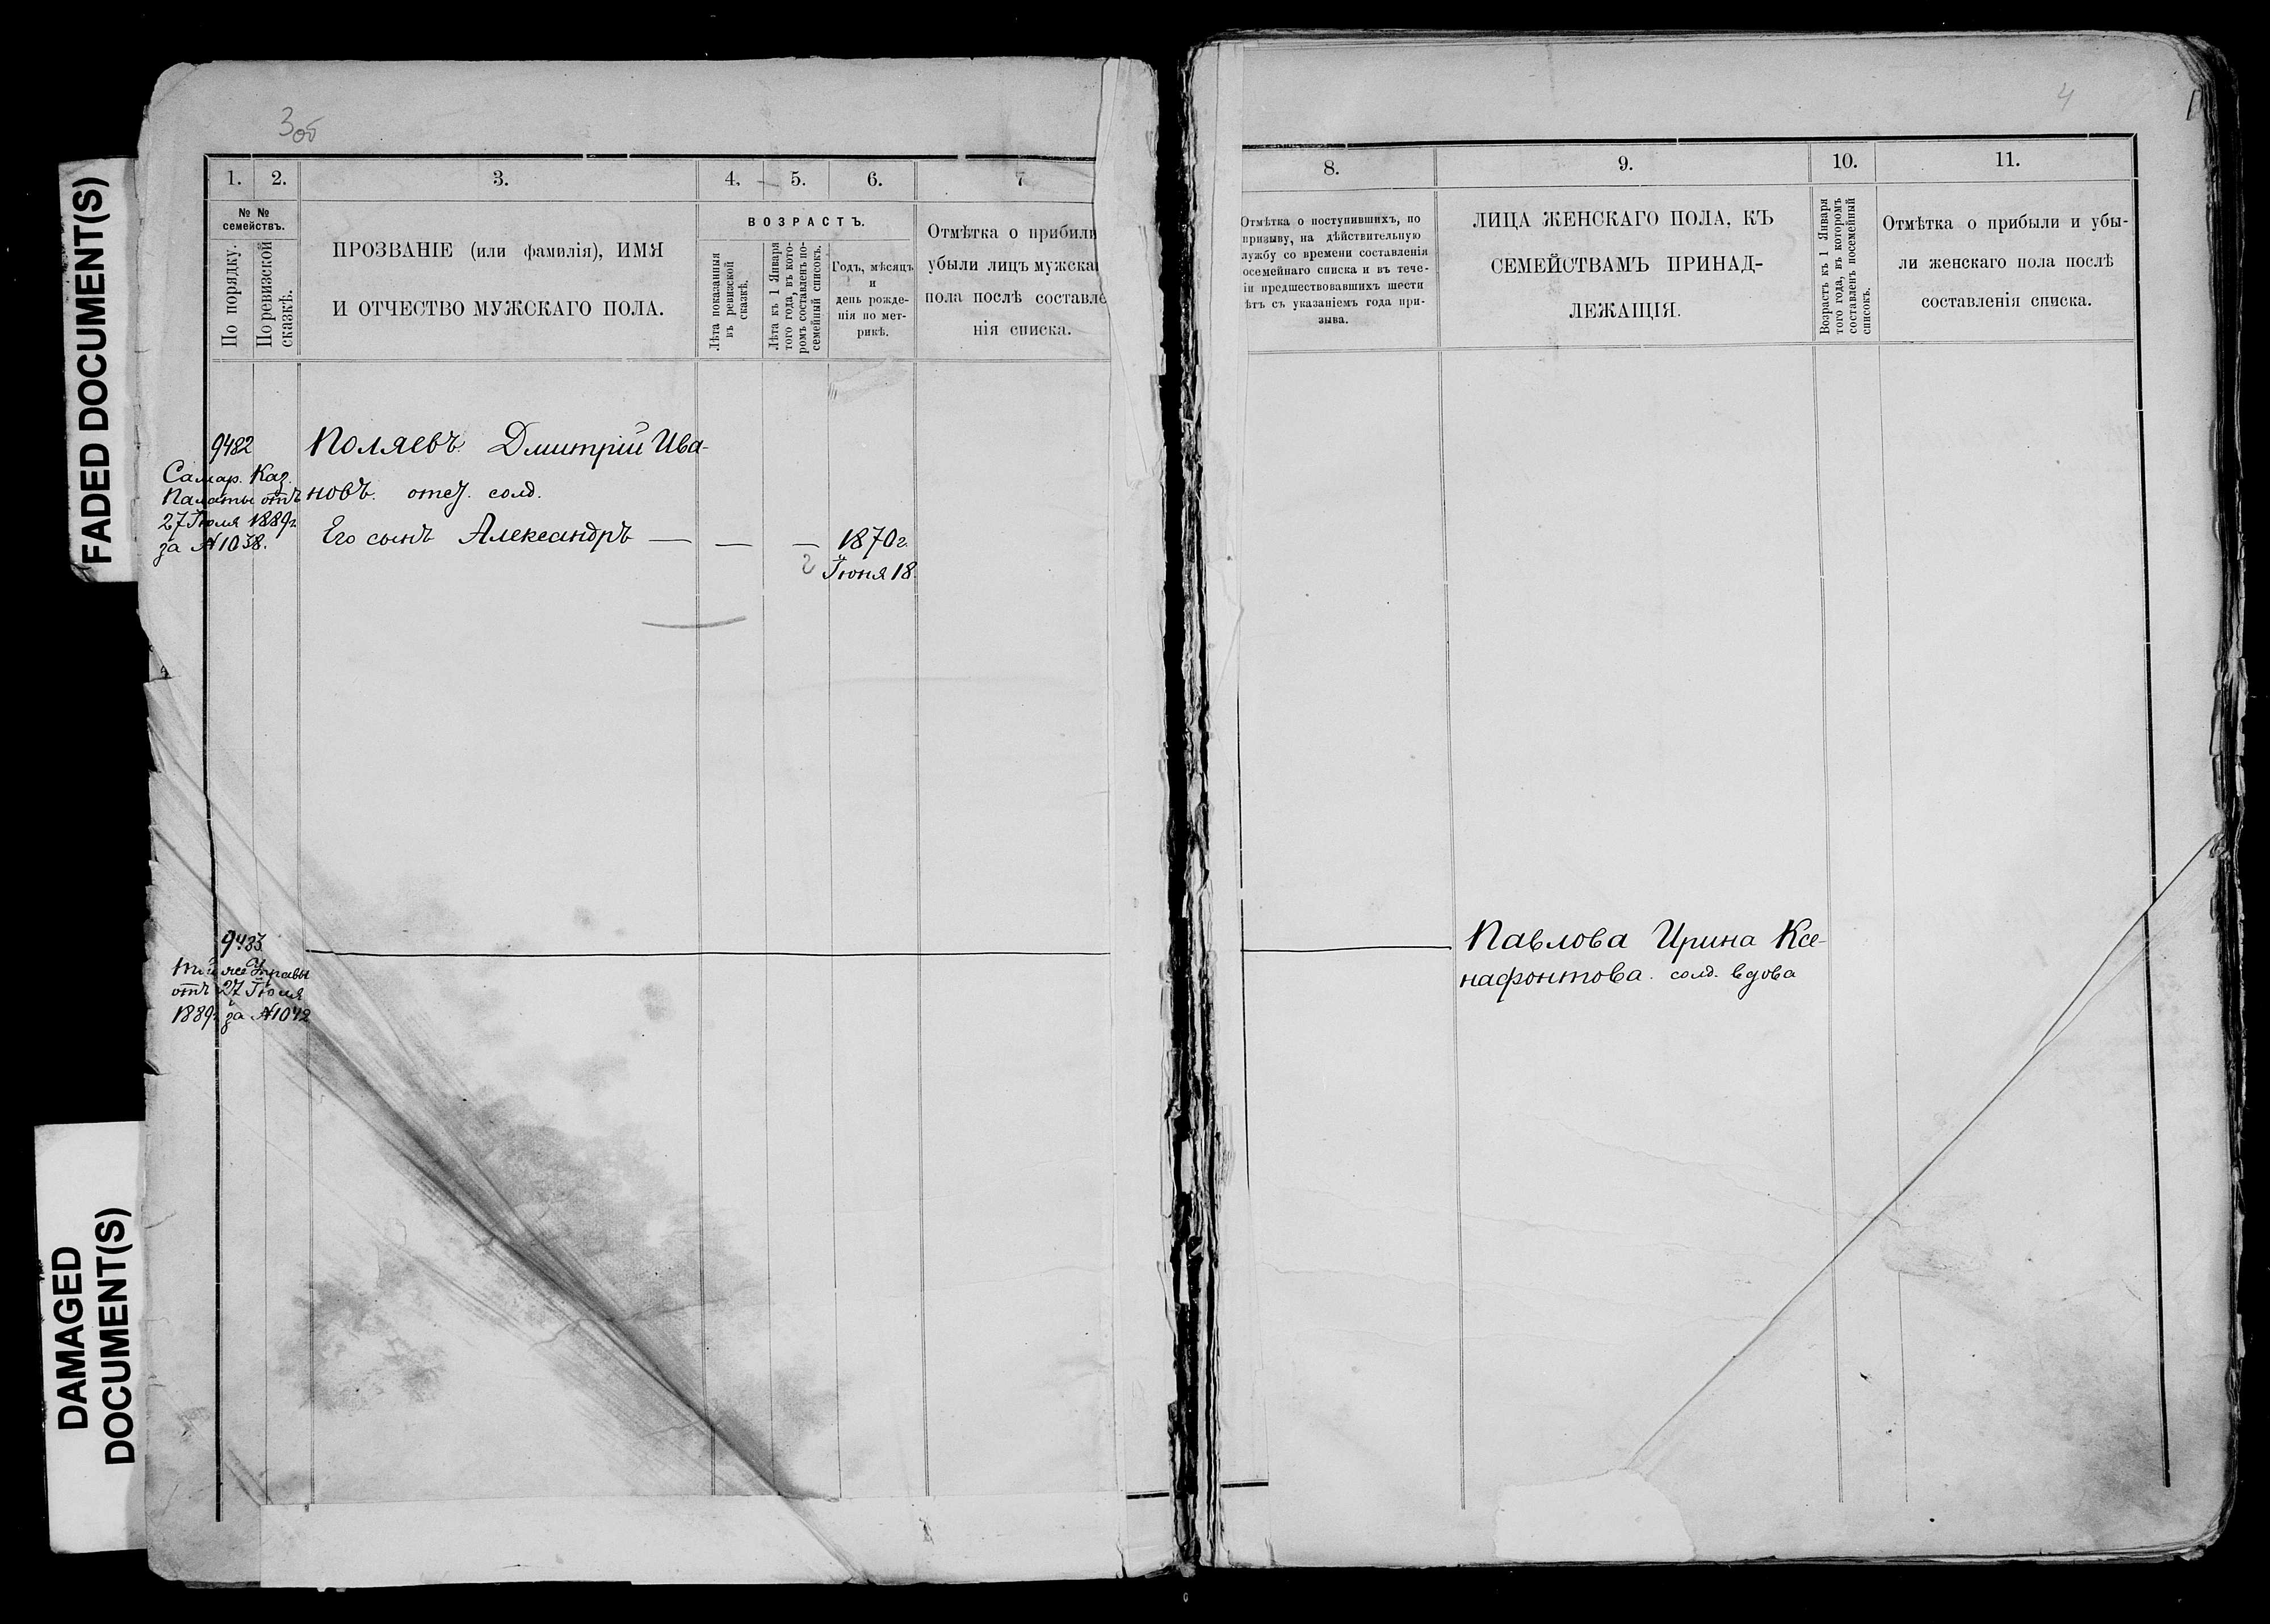 FADED DOCUMENT(S)
DAMAGED
DOCUMENT(S)
3об
1. 2. 3. 4. 5. 6. 7
№ №
семействъ.
По порядку.
По ревизской
сказкѣ.
ПРОЗВАНІЕ (или фамилія), ИМЯ
И ОТЧЕСТВО МУЖСКАГО ПОЛА.
ВОЗРАСТЪ.
Лѣта показанныя
въ ревизской
сказкѣ.
Лѣта къ 1 Января
того года, въ кото-
ромъ составленъ по-
семейный списокъ.
Годъ, мѣсяцъ
и
день рожде-
нія по мет-
рикѣ.
Отмѣтка о прибыли
убыли лицъ мужска
пола послѣ составле
нія списка.
9482
Самар. Каз.
Палаты отъ
27 Іюля 1889г.
за №1038.
Поляевъ Дмитрій Ива-
новъ. отст. солд.
Его сынъ Александръ — — — 1870г.
2 Іюня 18.
9483
той же Управы
отъ 27 Іюля
1889г за №1042
4
8. 9. 10. 11.
Отмѣтка о поступившихъ, по
призыву, на дѣйствительную
лужбу со времени составленія
осемейнаго списка и въ тече-
іи предшествовавшихъ шести
ѣтъ съ указаніемъ года при-
зыва.
ЛИЦА ЖЕНСКАГО ПОЛА, КЪ
СЕМЕЙСТВАМЪ ПРИНАД-
ЛЕЖАЩІЯ.
Возрастъ къ 1 Января
того года, въ которомъ
составленъ посемейный
списокъ.
Отмѣтка о прибыли и убы-
ли женскаго пола послѣ
составленія списка.
Павлова Ирина Ксе-
нафонтова. солд. вдова